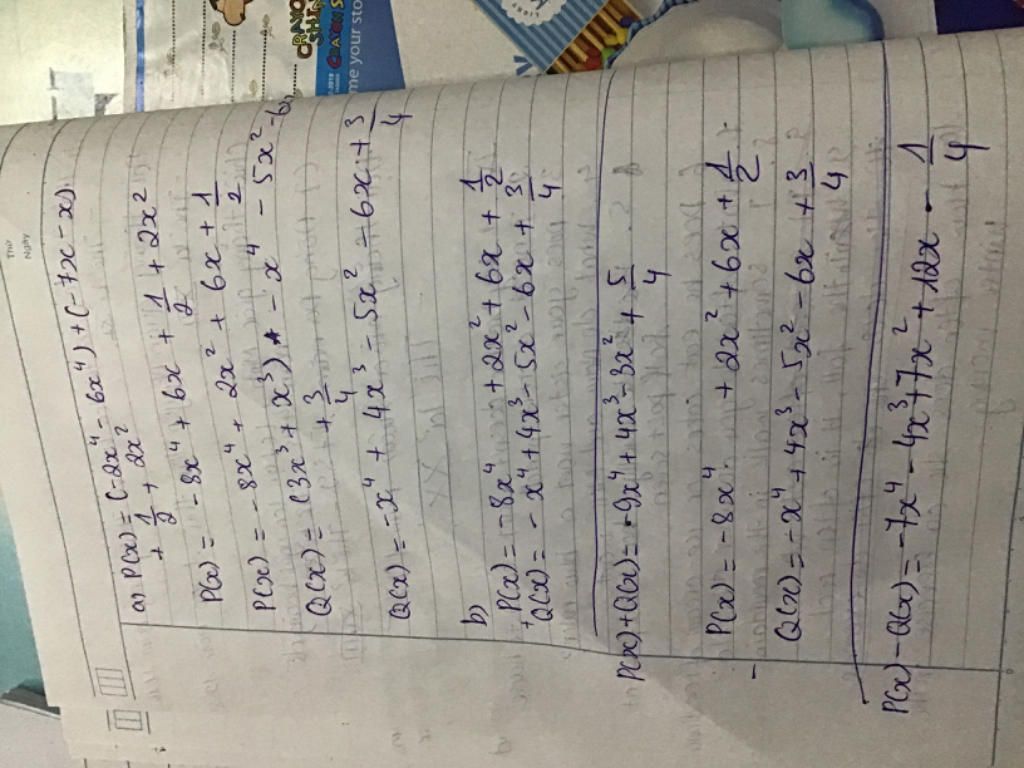 Thứ
Ngày
a) P(x) = (-2x⁴ - 6x⁴) + (-7x - x)
+ 1/2 + 2x²
P(x) = -8x⁴ + 6x + 1/2 + 2x²
P(x) = -8x⁴ + 2x² + 6x + 1/2
Q(x) = (3x³ + x³) - x⁴ - 5x² - 6x
+ 3/4
Q(x) = -x⁴ + 4x³ - 5x² - 6x + 3/4
b)
P(x) = -8x⁴ + 2x² + 6x + 1/2
+
Q(x) = -x⁴ + 4x³ - 5x² - 6x + 3/4
P(x) + Q(x) = -9x⁴ + 4x³ - 3x² + 5/4
P(x) = -8x⁴ + 2x² + 6x + 1/2
-
Q(x) = -x⁴ + 4x³ - 5x² - 6x + 3/4
P(x) - Q(x) = -7x⁴ - 4x³ + 7x² + 12x - 1/4
me your sto